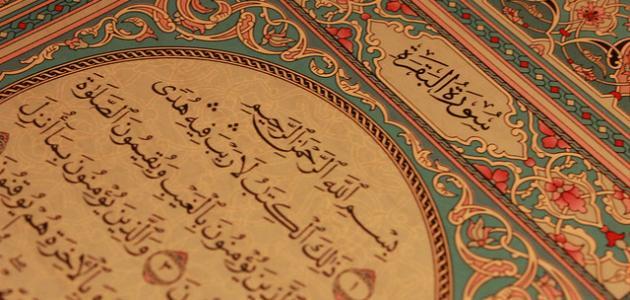 سُورَةُ البَقَرَةِ
بِسْمِ ٱللَّهِ ٱلرَّحْمَٰنِ ٱلرَّحِيمِ
١ ذَٰلِكَ ٱلْكِتَٰبُ لَا رَيْبَ فِيهِ هُدًى
ٱلَّذِينَ يُؤْمِنُونَ بِٱلْغَيْبِ وَيُقِيمُونَ ٱلصَّلَوٰةَ
٣ وَٱلَّذِينَ يُؤْمِنُونَ بِمَآ أُنزِلَ
وَبِٱلْآخِرَةِ هُمْ يُوقِنُونَ